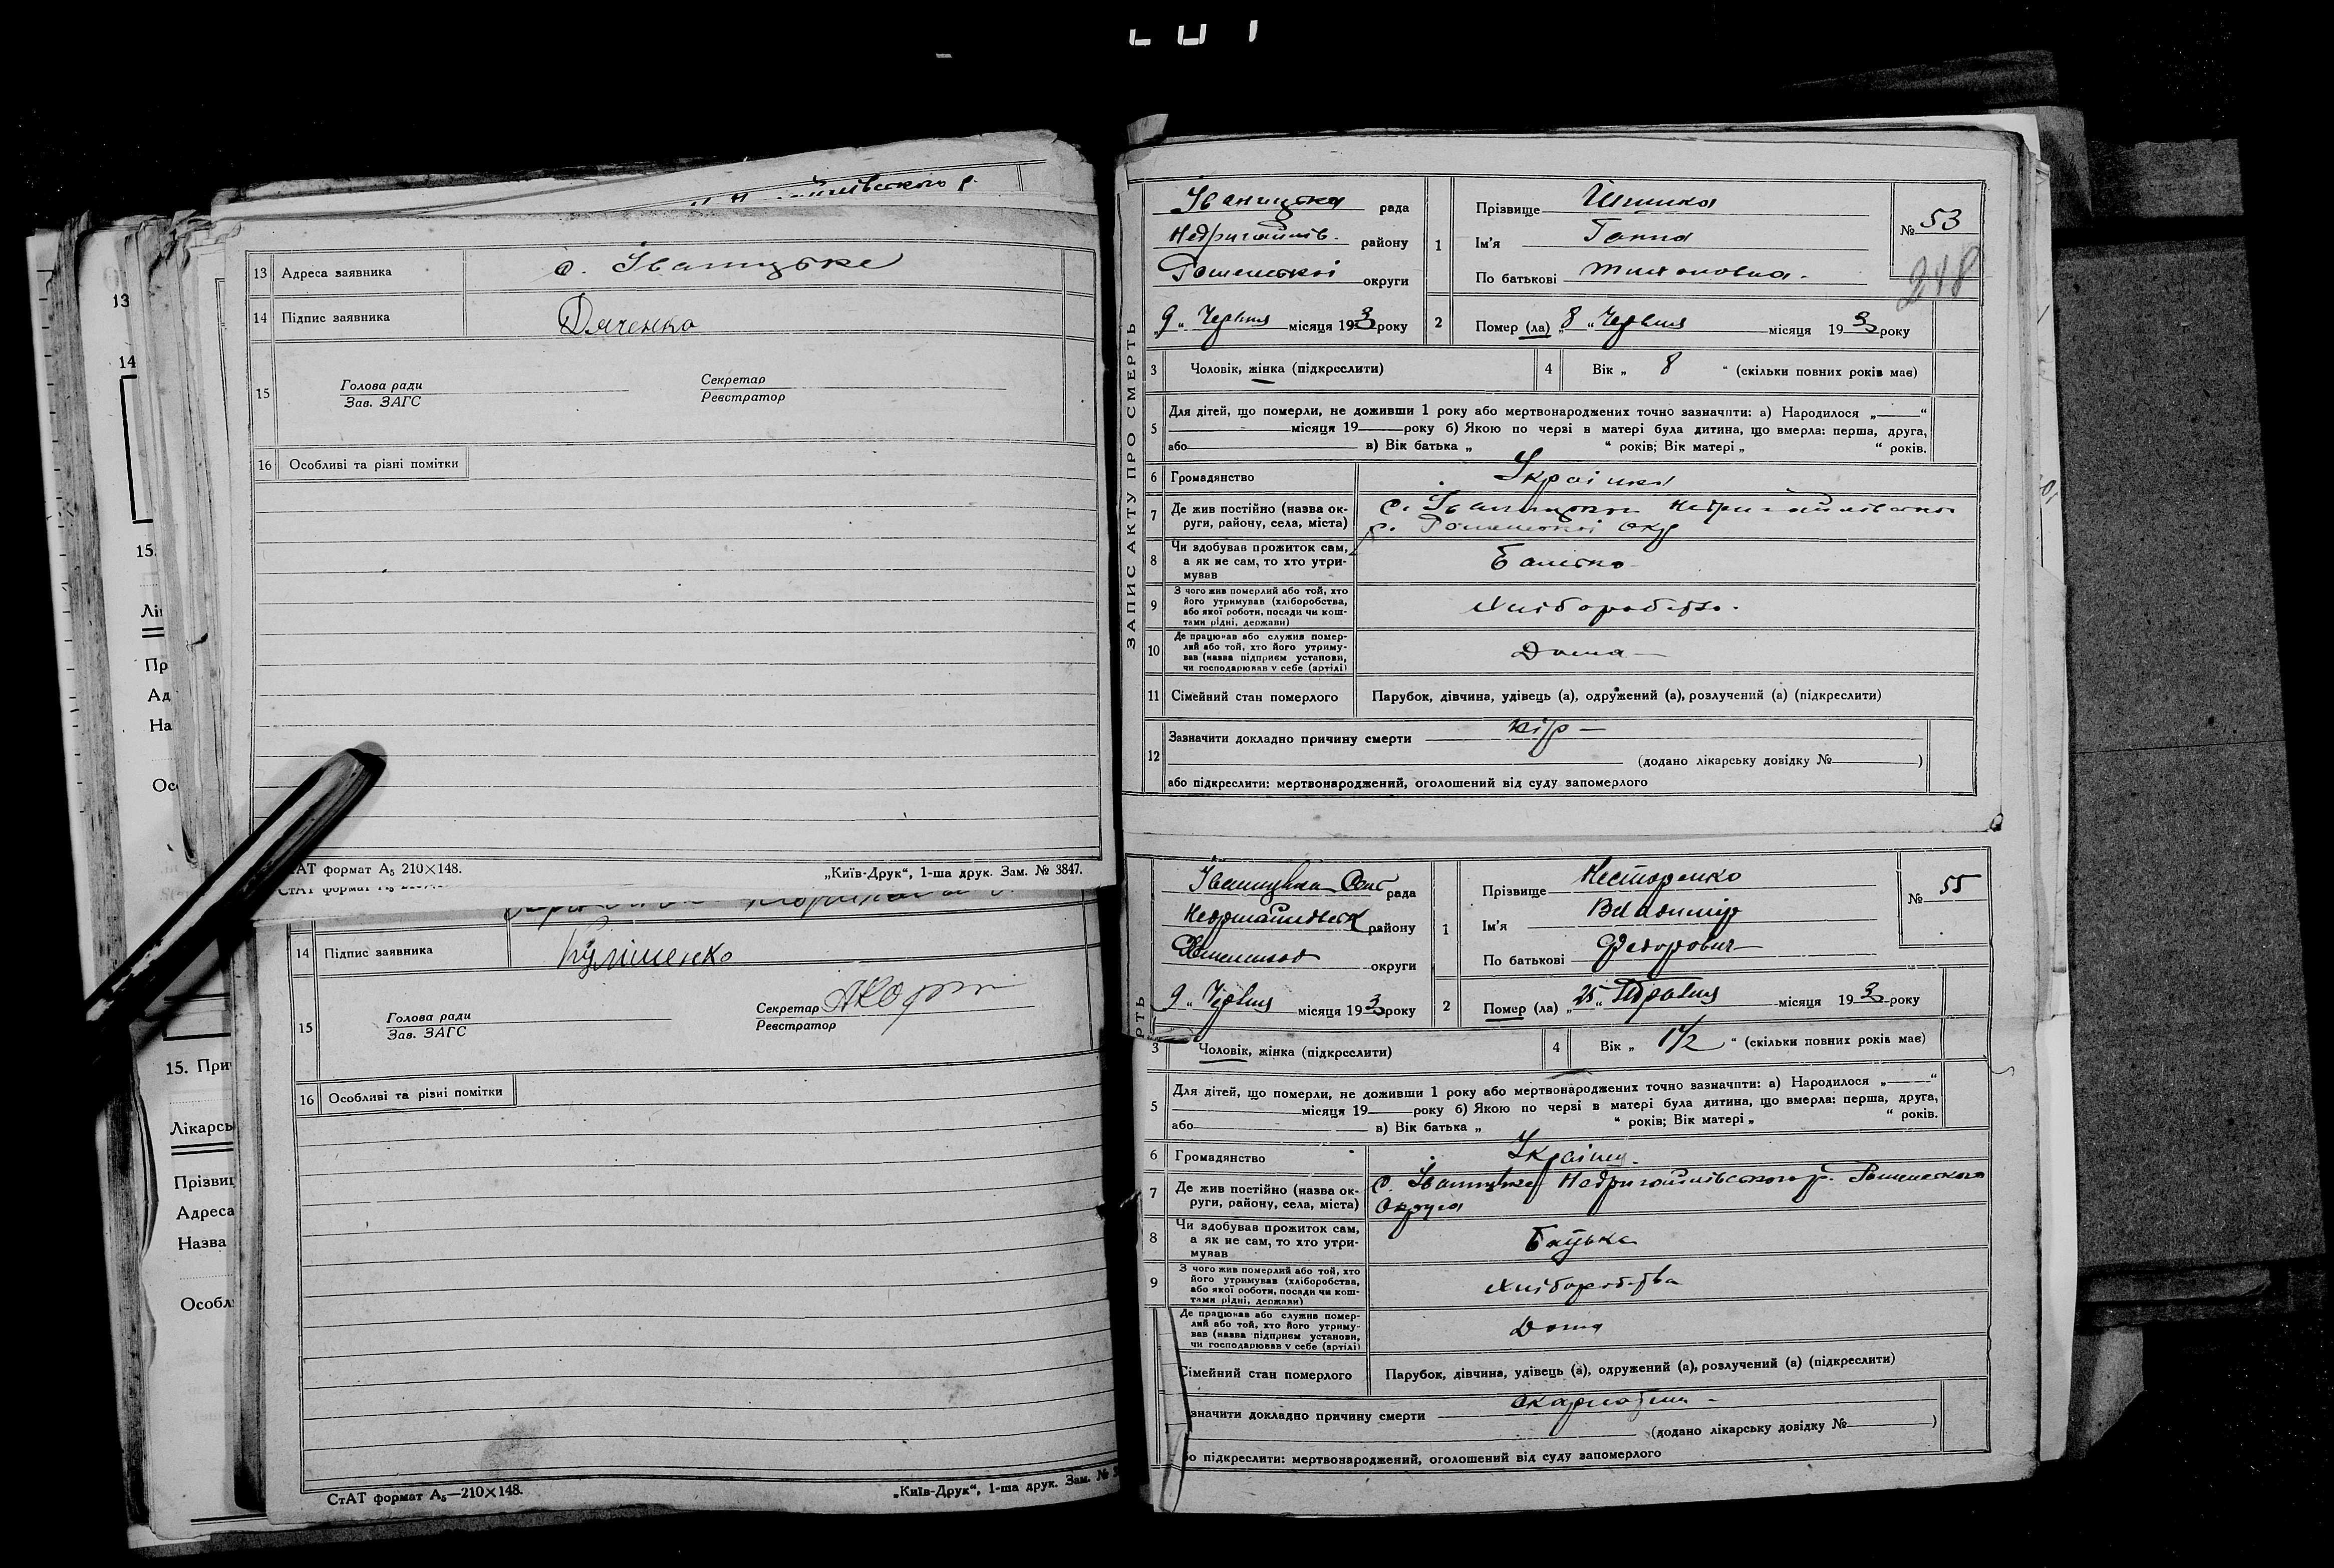 13 Адреса заявника с. Іваницьке
14 Підпис заявника Дяченко
15 Голова ради Секретар
Зав. ЗАГС Реєстратор
16 Особливі та різні помітки
СтАТ формат А5 210×148. „Київ-Друк“, 1-ша друк. Зам. № 3847.
14 Підпис заявника Куліненко
15 Голова ради Секретар
Зав. ЗАГС Реєстратор
16 Особливі та різні помітки
СтАТ формат А5—210×148. „Київ-Друк“, 1-ша друк. Зам. №
13
14
15.
Лі
Пр
Ад
На
15. При
Лікарсь
Прізви
Адреса
Назва
Особл
ЗАПИС АКТУ ПРО СМЕРТЬ
Іваницька рада
Недригайлів. району
Роменської округи
„9“ Червня місяця 193 року
1 Прізвище
Ім'я Ганна
По батькові Тихоновна
№ 53
248
2 Помер (ла) „8“ Червня місяця 193 року
3 Чоловік, жінка (підкреслити) 4 Вік „ 8 “ (скільки повних років має)
5 Для дітей, що померли, не доживши 1 року або мертвонароджених точно зазначити: а) Народилося „ “
місяця 19 року б) Якою по черзі в матері була дитина, що вмерла: перша, друга,
або в) Вік батька „ “ років; Вік матері „ “ років.
6 Громадянство Українка
7 Де жив постійно (назва округи, району, села, міста) с. Іваницької Недригайлівського
р. Роменської окр
8 Чи здобував прожиток сам,
а як не сам, то хто утри-
мував Батько
9 З чого жив померлий або той, хто
його утримував (хліборобства,
або якої роботи, посади чи кош-
тами рідні, держави) Хліборобство
10 Де працював або служив помер-
лий або той, хто його утриму-
вав (назва підприєм установи,
чи господарював у себе (артілі) Дома
11 Сімейний стан померлого Парубок, дівчина, удівець (а), одружений (а), розлучений (а) (підкреслити)
12 Зазначити докладно причину смерти кір
(додано лікарську довідку № )
або підкреслити: мертвонароджений, оголошений від суду запомерлого
Іваницька Сіль рада
району
округи
„9“ Червня місяця 193 року
1 Прізвище Нестеренко
Ім'я Владимір
По батькові Федорович
№ 55
2 Помер (ла) „25“ Травня місяця 193 року
3 Чоловік, жінка (підкреслити) 4 Вік „ 1 1/2 “ (скільки повних років має)
5 Для дітей, що померли, не доживши 1 року або мертвонароджених точно зазначити: а) Народилося „ “
місяця 19 року б) Якою по черзі в матері була дитина, що вмерла: перша, друга,
або в) Вік батька „ “ років; Вік матері „ “ років.
6 Громадянство Українец
7 Де жив постійно (назва округи, району, села, міста) с. Іваницьке Недригайлівського р. Роменского
Округа
8 Чи здобував прожиток сам,
а як не сам, то хто утри-
мував Батька
9 З чого жив померлий або той, хто
його утримував (хліборобства,
або якої роботи, посади чи кош-
тами рідні, держави) Хліборобства
Де працював або служив помер-
лий або той, хто його утриму-
вав (назва підприєм установи,
чи господарював у себе (артілі) Дома
Сімейний стан померлого Парубок, дівчина, удівець (а), одружений (а), розлучений (а) (підкреслити)
значити докладно причину смерти скарлатина
(додано лікарську довідку № )
бо підкреслити: мертвонароджений, оголошений від суду запомерлого